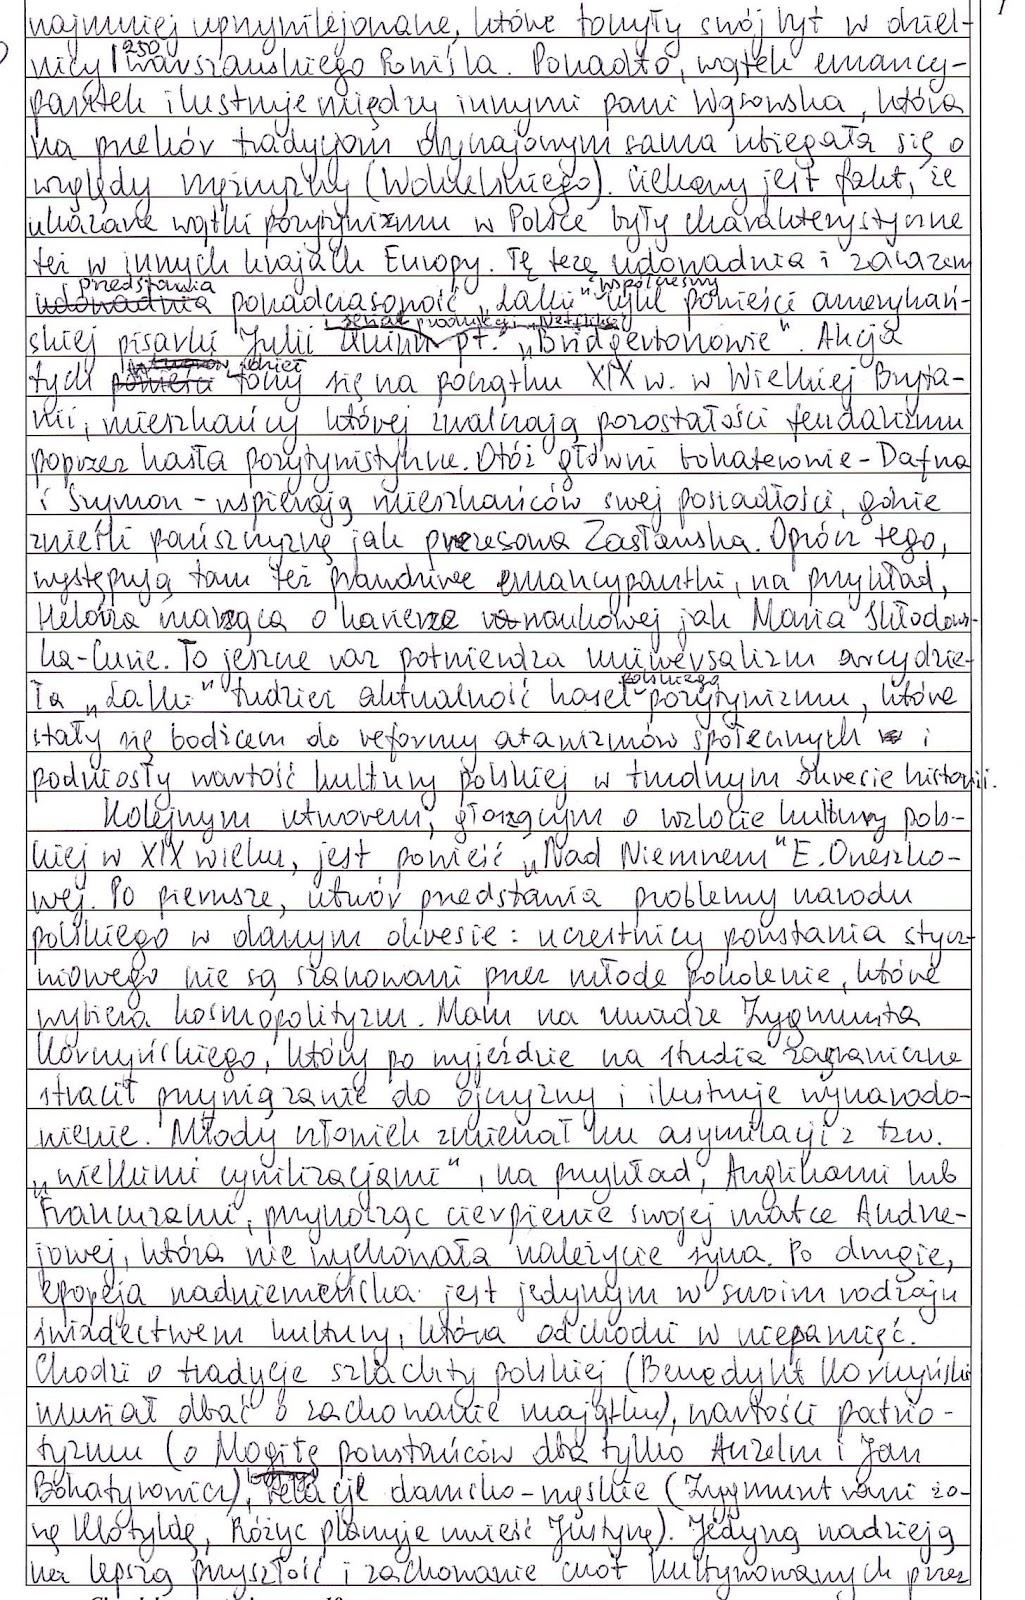 najmniej uprzywilejonane, które toczyły swój byt w dziel-
nicy |²⁵⁰ warszawskiego Powiśla. Ponadto, wątek emancy-
pantek ilustruje między innymi pani Wąsowska, która
na przekór tradycjom obyczajowym sama ubiegała się o
względy mężczyzny (Wokulskiego). Ciekawy jest fakt, że
ukazane wątki pozytywizmu w Polsce były charakterystyczne
też w innych krajach Europy. Tę tezę udowadnia i zarazem
przedstawia współczesny
udowadnia ponadczasowość „Lalki" cykl powieści amerykań-
serial produkcji Netfliksa
skiej pisarki Julii Quinn pt. „Bridgertonowie". Akcja
utworów dzieł
tych powieści toczy się na początku XIX w. w Wielkiej Bryta-
nii, mieszkańcy której zwalczają pozostałości feudalizmu
poprzez hasła pozytywistyczne. Otóż główni bohaterowie - Dafna
i Szymon - wspierają mieszkańców swej posiadłości, gdzie
znieśli pańszczyznę jak prezesowa Zasławska. Oprócz tego,
występują tam też prawdziwe emancypantki, na przykład,
Heloiza marząca o karierze na naukowej jak Maria Skłodows-
ka-Curie. To jeszcze raz potwierdza uniwersalizm arcydzie-
polskiego
ła „Lalki" tudzież aktualność haseł pozytywizmu, które
stały się bodźcem do reformy atawizmów społecznych w i
podniosły wartość kultury polskiej w trudnym okresie historii.
Kolejnym utworem, głoszącym o wzlocie kultury pols-
kiej w XIX wieku, jest powieść „Nad Niemnem" E. Orzeszko-
wej. Po pierwsze, utwór przedstawia problemy narodu
polskiego w danym okresie: uczestnicy powstania stycz-
niowego nie są szanowani przez młode pokolenie, które
wybiera kosmopolityzm. Mam na uwadze Zygmunta
Korczyńskiego, który po wyjeździe na studia zagraniczne
stracił przywiązanie do ojczyzny i ilustruje wynarodo-
wienie. Młody człowiek zmierzał ku asymilacji z tzw.
„wielkimi cywilizacjami", na przykład, Anglikami lub
Francuzami, przynosząc cierpienie swojej matce Andrze-
jowej, która nie wychowała należycie syna. Po drugie,
epopeja nadniemeńska jest jedynym w swoim rodzaju
świadectwem kultury, która odchodzi w niepamięć.
Chodzi o tradycje szlachty polskiej (Benedykt Korczyński
musiał dbać o zachowanie majątku), wartości patrio-
tyzmu (o Mogiłę powstańców dba tylko Anzelm i Jan
Bohatyrowicz), relacje damsko-męskie (Zygmunt rani żo-
nę Klotyldę, Różyc planuje uwieść Justynę). Jedyną nadzieją
na lepszą przyszłość i zachowanie cnot kultywowanych przez